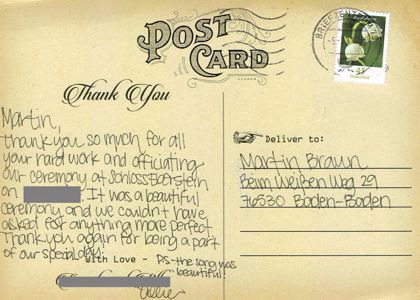 POST
CARD
Thank You
BRIEFZEN
45
Martin,
thank you so much for all
your hard work and officiating
our ceremony at Schloss Eberstein
on
It was a beautiful
ceremony and we couldn't have
asked for anything more perfect
Thank you again for being a part
of our special day!
With Love - Ps-the song was
beautiful!
Deliver to:
Martin Braun
Beim Weißen Weg 29
76530 Baden-Baden